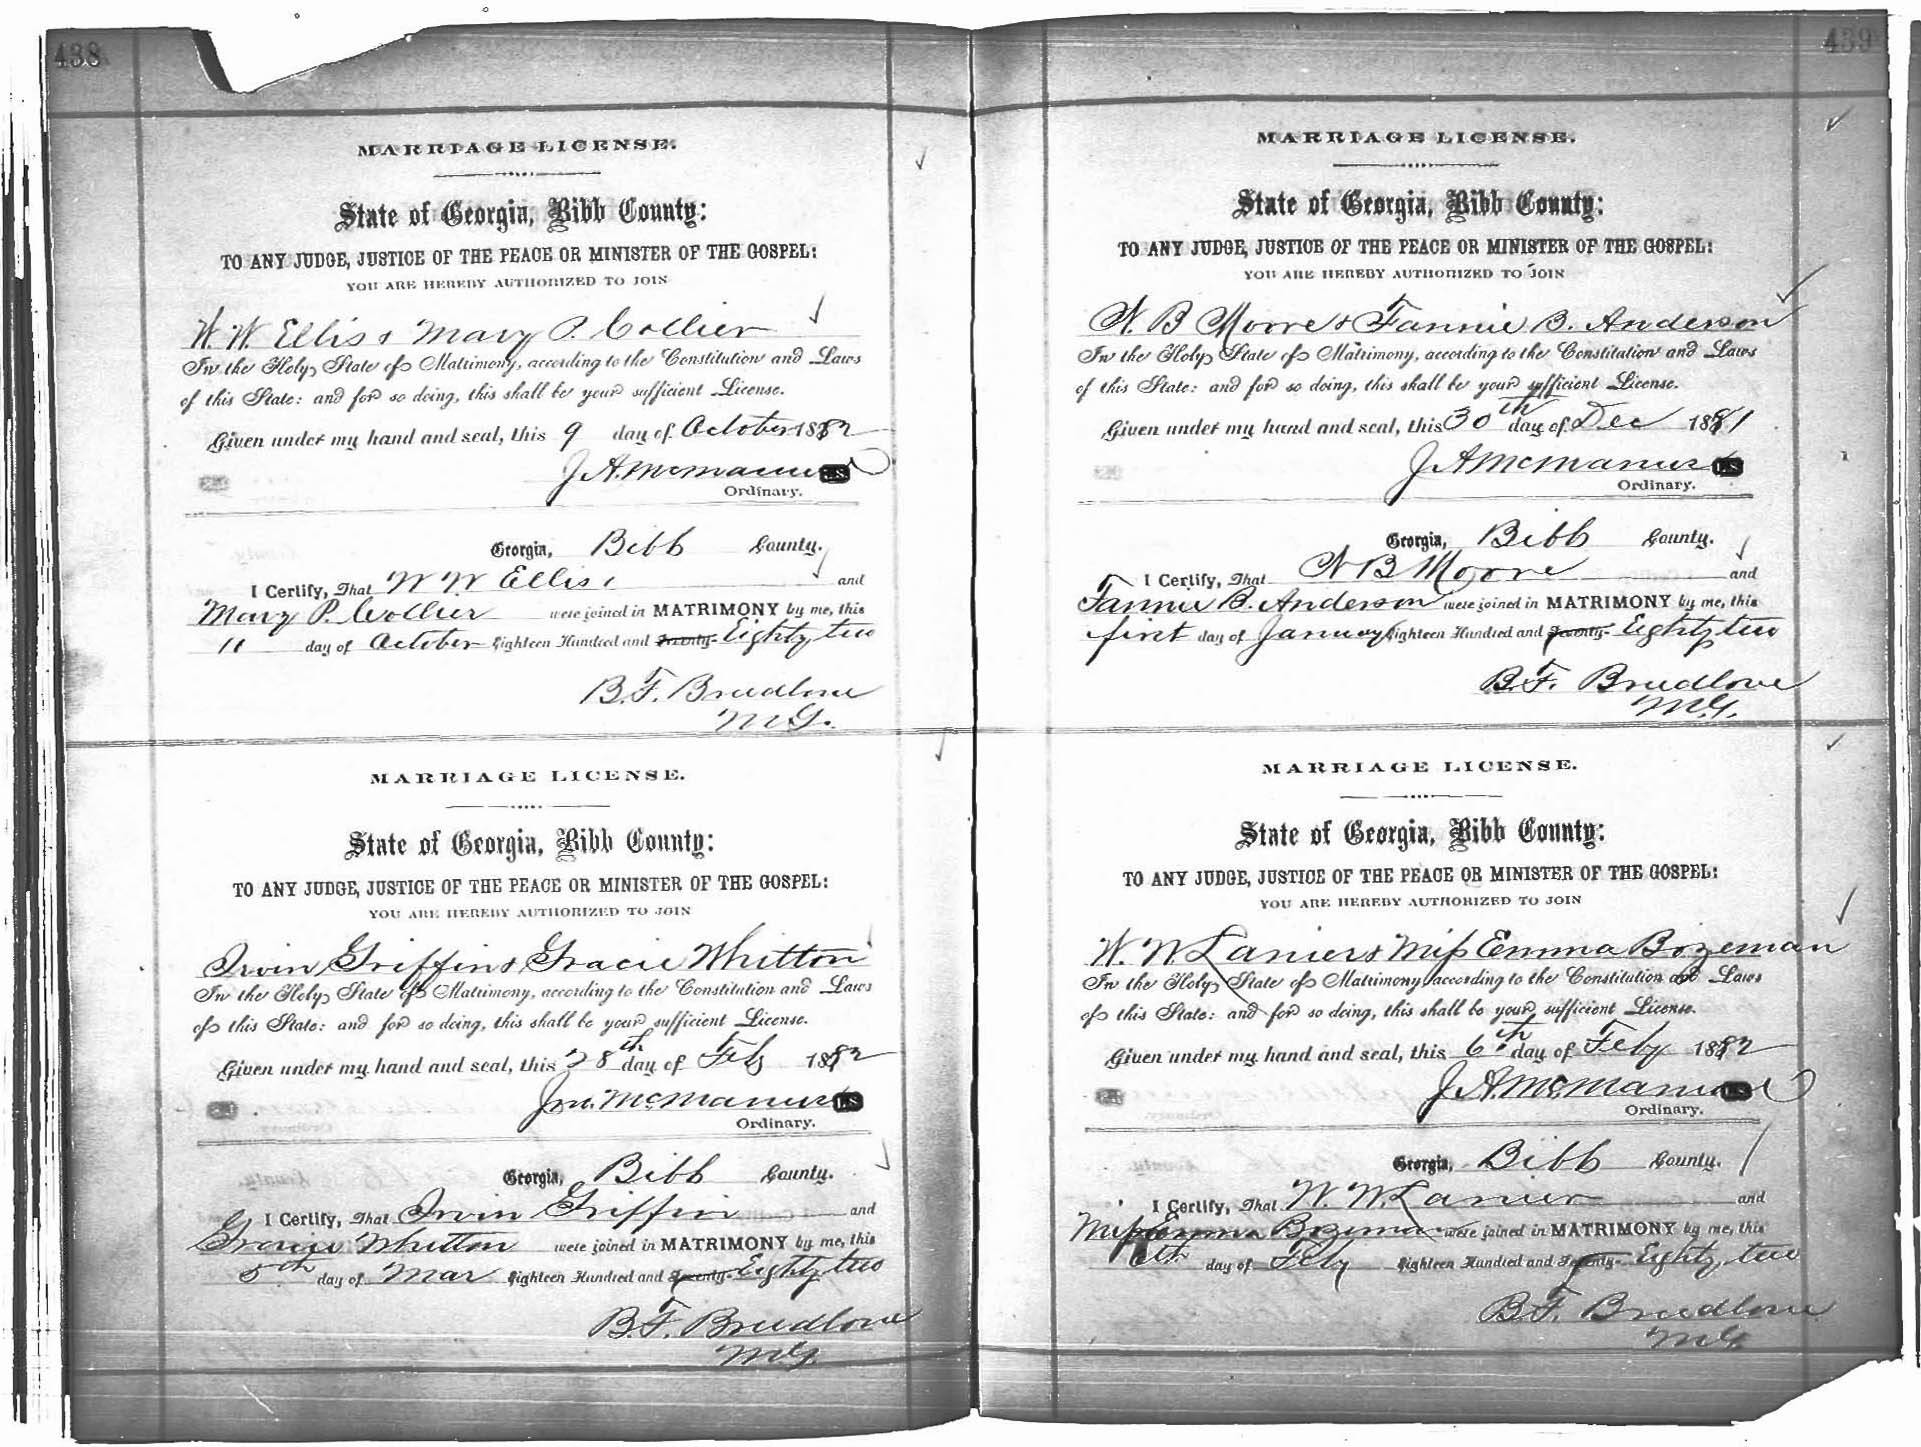 438
MARRIAGE LICENSE.
State of Georgia, Bibb County:
TO ANY JUDGE, JUSTICE OF THE PEACE OR MINISTER OF THE GOSPEL:
YOU ARE HEREBY AUTHORIZED TO JOIN
W. W. Ellis & Mary P. Collier
In the Holy State of Matrimony, according to the Constitution and Laws
of this State: and for so doing, this shall be your sufficient License.
Given under my hand and seal, this 9 day of October 1882
J A. McManus L.S.
Ordinary.
Georgia, Bibb County.
I Certify, That W W Ellis and
Mary P. Collier were joined in MATRIMONY by me, this
11 day of October Eighteen Hundred and Seventy- Eighty two
B. F. Breedlove
M.G.
MARRIAGE LICENSE.
State of Georgia, Bibb County:
TO ANY JUDGE, JUSTICE OF THE PEACE OR MINISTER OF THE GOSPEL:
YOU ARE HEREBY AUTHORIZED TO JOIN
Irvin Griffin & Gracie Whitton
In the Holy State of Matrimony, according to the Constitution and Laws
of this State: and for so doing, this shall be your sufficient License.
Given under my hand and seal, this 28th day of Feby 1882
McManus L.S.
Ordinary.
Georgia, Bibb County.
I Certify, That Irvin Griffin and
Gracie Whitton were joined in MATRIMONY by me, this
5th day of Mar Eighteen Hundred and Seventy- Eighty two
B. F. Breedlove
M.G.
439
MARRIAGE LICENSE.
State of Georgia, Bibb County:
TO ANY JUDGE, JUSTICE OF THE PEACE OR MINISTER OF THE GOSPEL:
YOU ARE HEREBY AUTHORIZED TO JOIN
N. B Moore & Fannie B. Anderson
In the Holy State of Matrimony, according to the Constitution and Laws
of this State: and for so doing, this shall be your sufficient License.
Given under my hand and seal, this 30th day of Dec 1881
J A McManus L.S.
Ordinary.
Georgia, Bibb County.
I Certify, That N B Moore and
Fannie B. Anderson were joined in MATRIMONY by me, this
first day of January Eighteen Hundred and Seventy- Eighty two
B. F. Breedlove
M.G.
MARRIAGE LICENSE.
State of Georgia, Bibb County:
TO ANY JUDGE, JUSTICE OF THE PEACE OR MINISTER OF THE GOSPEL:
YOU ARE HEREBY AUTHORIZED TO JOIN
W. W Lanier & Miss Emma Bozeman
In the Holy State of Matrimony, according to the Constitution and Laws
of this State: and for so doing, this shall be your sufficient License.
Given under my hand and seal, this 6th day of Feby 1882
J A. McManus L.S.
Ordinary.
Georgia, Bibb County.
I Certify, That W. W. Lanier and
Miss Emma Bozeman were joined in MATRIMONY by me, this
6th day of Feby Eighteen Hundred and Seventy- Eighty two
B. F. Breedlove
M.G.